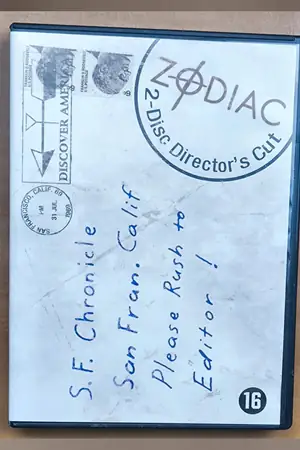 DISCOVER AMERICA
SAN FRANCISCO, CALIF.
PM
31 JUL
1969
ZODIAC
2-Disc Director's Cut
S.F. Chronicle
San Fran. Calif
Please Rush to
Editor!
16